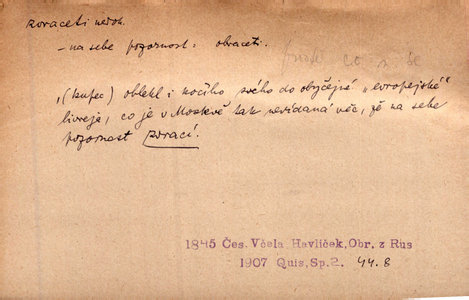 zoraceti nedok.
– na sebe pozornost: obraceti.
co
„(kupec) oblekl i kočího svého do obyčejné „evropejské"
livreje, co je v Moskvě tak nevídaná věc, že na sebe
pozornost zorací.
1845 Čes. Včela, Havlíček, Obr. z Rus
1907 Quis, Sp. 2. 44.8